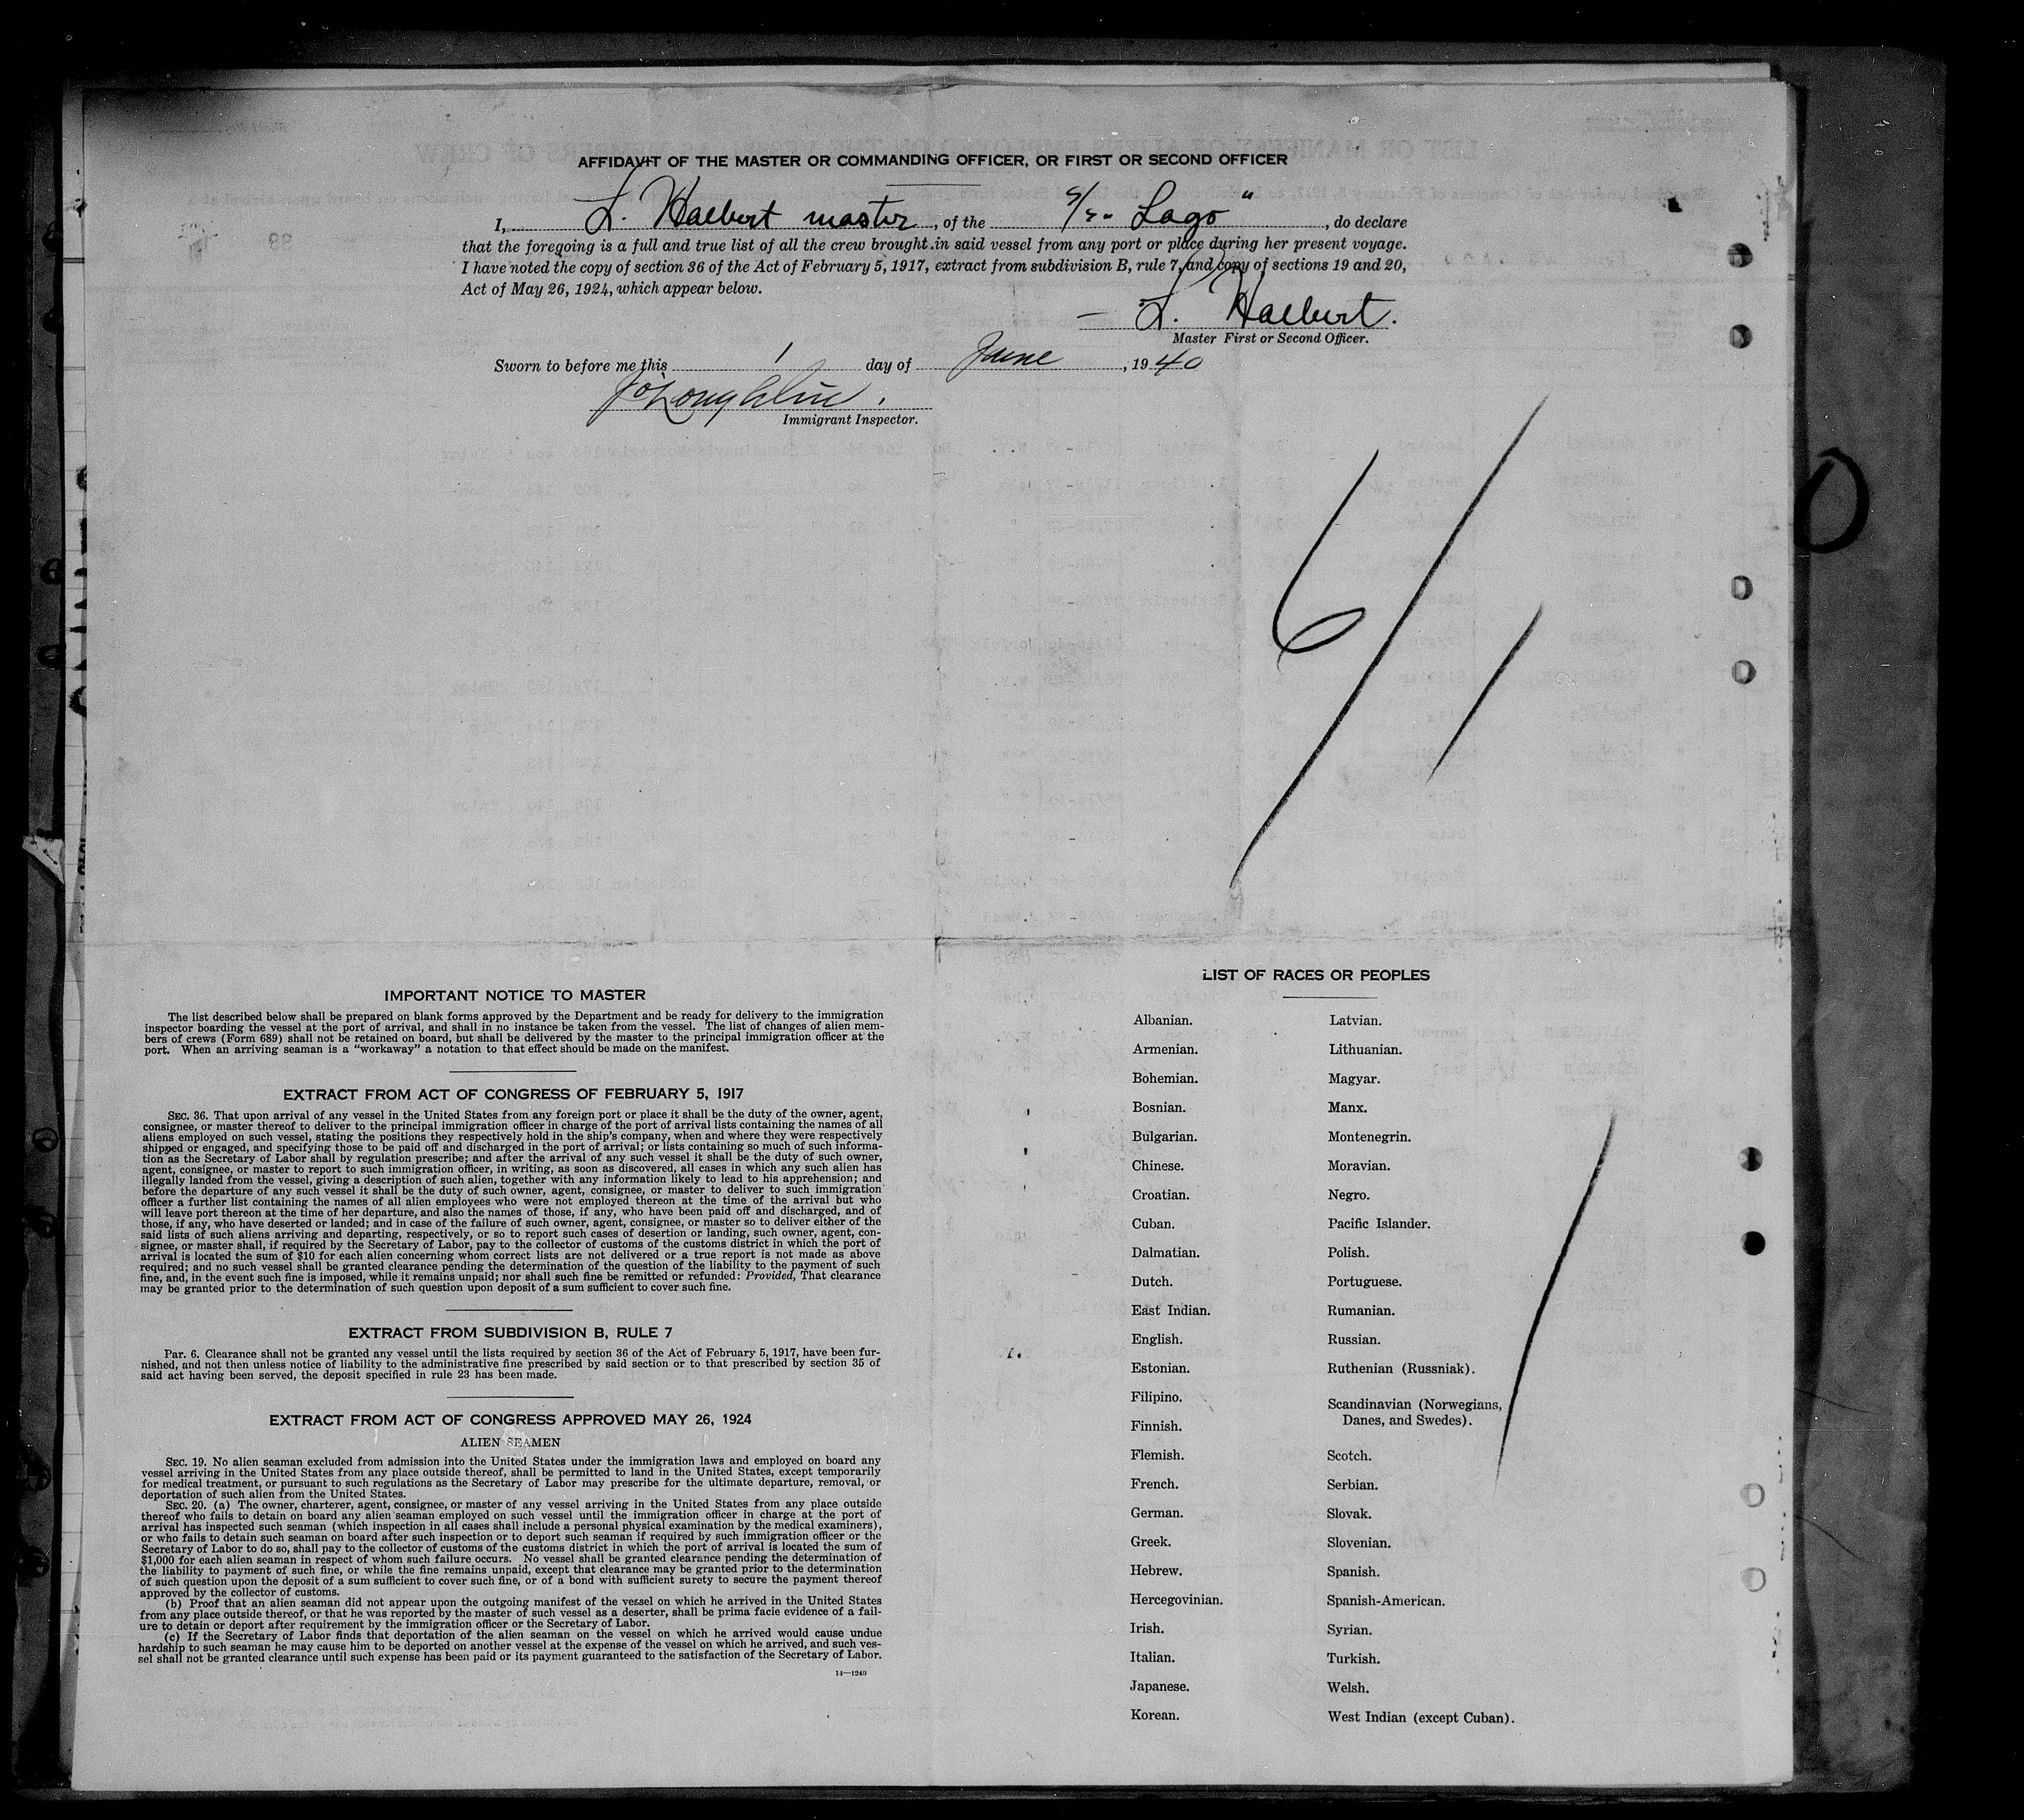 AFFIDAVIT OF THE MASTER OR COMMANDING OFFICER, OR FIRST OR SECOND OFFICER
I, L. Halbert master, of the S/S "Lago", do declare
that the foregoing is a full and true list of all the crew brought in said vessel from any port or place during her present voyage.
I have noted the copy of section 36 of the Act of February 5, 1917, extract from subdivision B, rule 7, and copy of sections 19 and 20,
Act of May 26, 1924, which appear below.
L. Halbert.
Master First or Second Officer.
Sworn to before me this 1 day of June, 1940
Immigrant Inspector.
6/1
IMPORTANT NOTICE TO MASTER
The list described below shall be prepared on blank forms approved by the Department and be ready for delivery to the immigration
inspector boarding the vessel at the port of arrival, and shall in no instance be taken from the vessel. The list of changes of alien mem-
bers of crews (Form 689) shall not be retained on board, but shall be delivered by the master to the principal immigration officer at the
port. When an arriving seaman is a "workaway" a notation to that effect should be made on the manifest.
EXTRACT FROM ACT OF CONGRESS OF FEBRUARY 5, 1917
SEC. 36. That upon arrival of any vessel in the United States from any foreign port or place it shall be the duty of the owner, agent,
consignee, or master thereof to deliver to the principal immigration officer in charge of the port of arrival lists containing the names of all
aliens employed on such vessel, stating the positions they respectively hold in the ship's company, when and where they were respectively
shipped or engaged, and specifying those to be paid off and discharged in the port of arrival; or lists containing so much of such informa-
tion as the Secretary of Labor shall by regulation prescribe; and after the arrival of any such vessel it shall be the duty of such owner,
agent, consignee, or master to report to such immigration officer, in writing, as soon as discovered, all cases in which any such alien has
illegally landed from the vessel, giving a description of such alien, together with any information likely to lead to his apprehension; and
before the departure of any such vessel it shall be the duty of such owner, agent, consignee, or master to deliver to such immigration
officer a further list containing the names of all alien employees who were not employed thereon at the time of the arrival but who
will leave port thereon at the time of her departure, and also the names of those, if any, who have been paid off and discharged, and of
those, if any, who have deserted or landed; and in case of the failure of such owner, agent, consignee, or master so to deliver either of the
said lists of such aliens arriving and departing, respectively, or so to report such cases of desertion or landing, such owner, agent, con-
signee, or master shall, if required by the Secretary of Labor, pay to the collector of customs of the customs district in which the port of
arrival is located the sum of $10 for each alien concerning whom correct lists are not delivered or a true report is not made as above
required; and no such vessel shall be granted clearance pending the determination of the question of the liability to the payment of such
fine, and, in the event such fine is imposed, while it remains unpaid; nor shall such fine be remitted or refunded: Provided, That clearance
may be granted prior to the determination of such question upon deposit of a sum sufficient to cover such fine.
EXTRACT FROM SUBDIVISION B, RULE 7
Par. 6. Clearance shall not be granted any vessel until the lists required by section 36 of the Act of February 5, 1917, have been fur-
nished, and not then unless notice of liability to the administrative fine prescribed by said section or to that prescribed by section 35 of
said act having been served, the deposit specified in rule 23 has been made.
EXTRACT FROM ACT OF CONGRESS APPROVED MAY 26, 1924
ALIEN SEAMEN
SEC. 19. No alien seaman excluded from admission into the United States under the immigration laws and employed on board any
vessel arriving in the United States from any place outside thereof, shall be permitted to land in the United States, except temporarily
for medical treatment, or pursuant to such regulations as the Secretary of Labor may prescribe for the ultimate departure, removal, or
deportation of such alien from the United States.
SEC. 20. (a) The owner, charterer, agent, consignee, or master of any vessel arriving in the United States from any place outside
thereof who fails to detain on board any alien seaman employed on such vessel until the immigration officer in charge at the port of
arrival has inspected such seaman (which inspection in all cases shall include a personal physical examination by the medical examiners),
or who fails to detain such seaman on board after such inspection or to deport such seaman if required by such immigration officer or the
Secretary of Labor to do so, shall pay to the collector of customs of the customs district in which the port of arrival is located the sum of
$1,000 for each alien seaman in respect of whom such failure occurs. No vessel shall be granted clearance pending the determination of
the liability to payment of such fine, or while the fine remains unpaid, except that clearance may be granted prior to the determination
of such question upon the deposit of a sum sufficient to cover such fine, or of a bond with sufficient surety to secure the payment thereof
approved by the collector of customs.
(b) Proof that an alien seaman did not appear upon the outgoing manifest of the vessel on which he arrived in the United States
from any place outside thereof, or that he was reported by the master of such vessel as a deserter, shall be prima facie evidence of a fail-
ure to detain or deport after requirement by the immigration officer or the Secretary of Labor.
(c) If the Secretary of Labor finds that deportation of the alien seaman on the vessel on which he arrived would cause undue
hardship to such seaman he may cause him to be deported on another vessel at the expense of the vessel on which he arrived, and such ves-
sel shall not be granted clearance until such expense has been paid or its payment guaranteed to the satisfaction of the Secretary of Labor.
14—1240
LIST OF RACES OR PEOPLES
Albanian.
Armenian.
Bohemian.
Bosnian.
Bulgarian.
Chinese.
Croatian.
Cuban.
Dalmatian.
Dutch.
East Indian.
English.
Estonian.
Filipino.
Finnish.
Flemish.
French.
German.
Greek.
Hebrew.
Hercegovinian.
Irish.
Italian.
Japanese.
Korean.
Latvian.
Lithuanian.
Magyar.
Manx.
Montenegrin.
Moravian.
Negro.
Pacific Islander.
Polish.
Portuguese.
Rumanian.
Russian.
Ruthenian (Russniak).
Scandinavian (Norwegians,
Danes, and Swedes).
Scotch.
Serbian.
Slovak.
Slovenian.
Spanish.
Spanish-American.
Syrian.
Turkish.
Welsh.
West Indian (except Cuban).